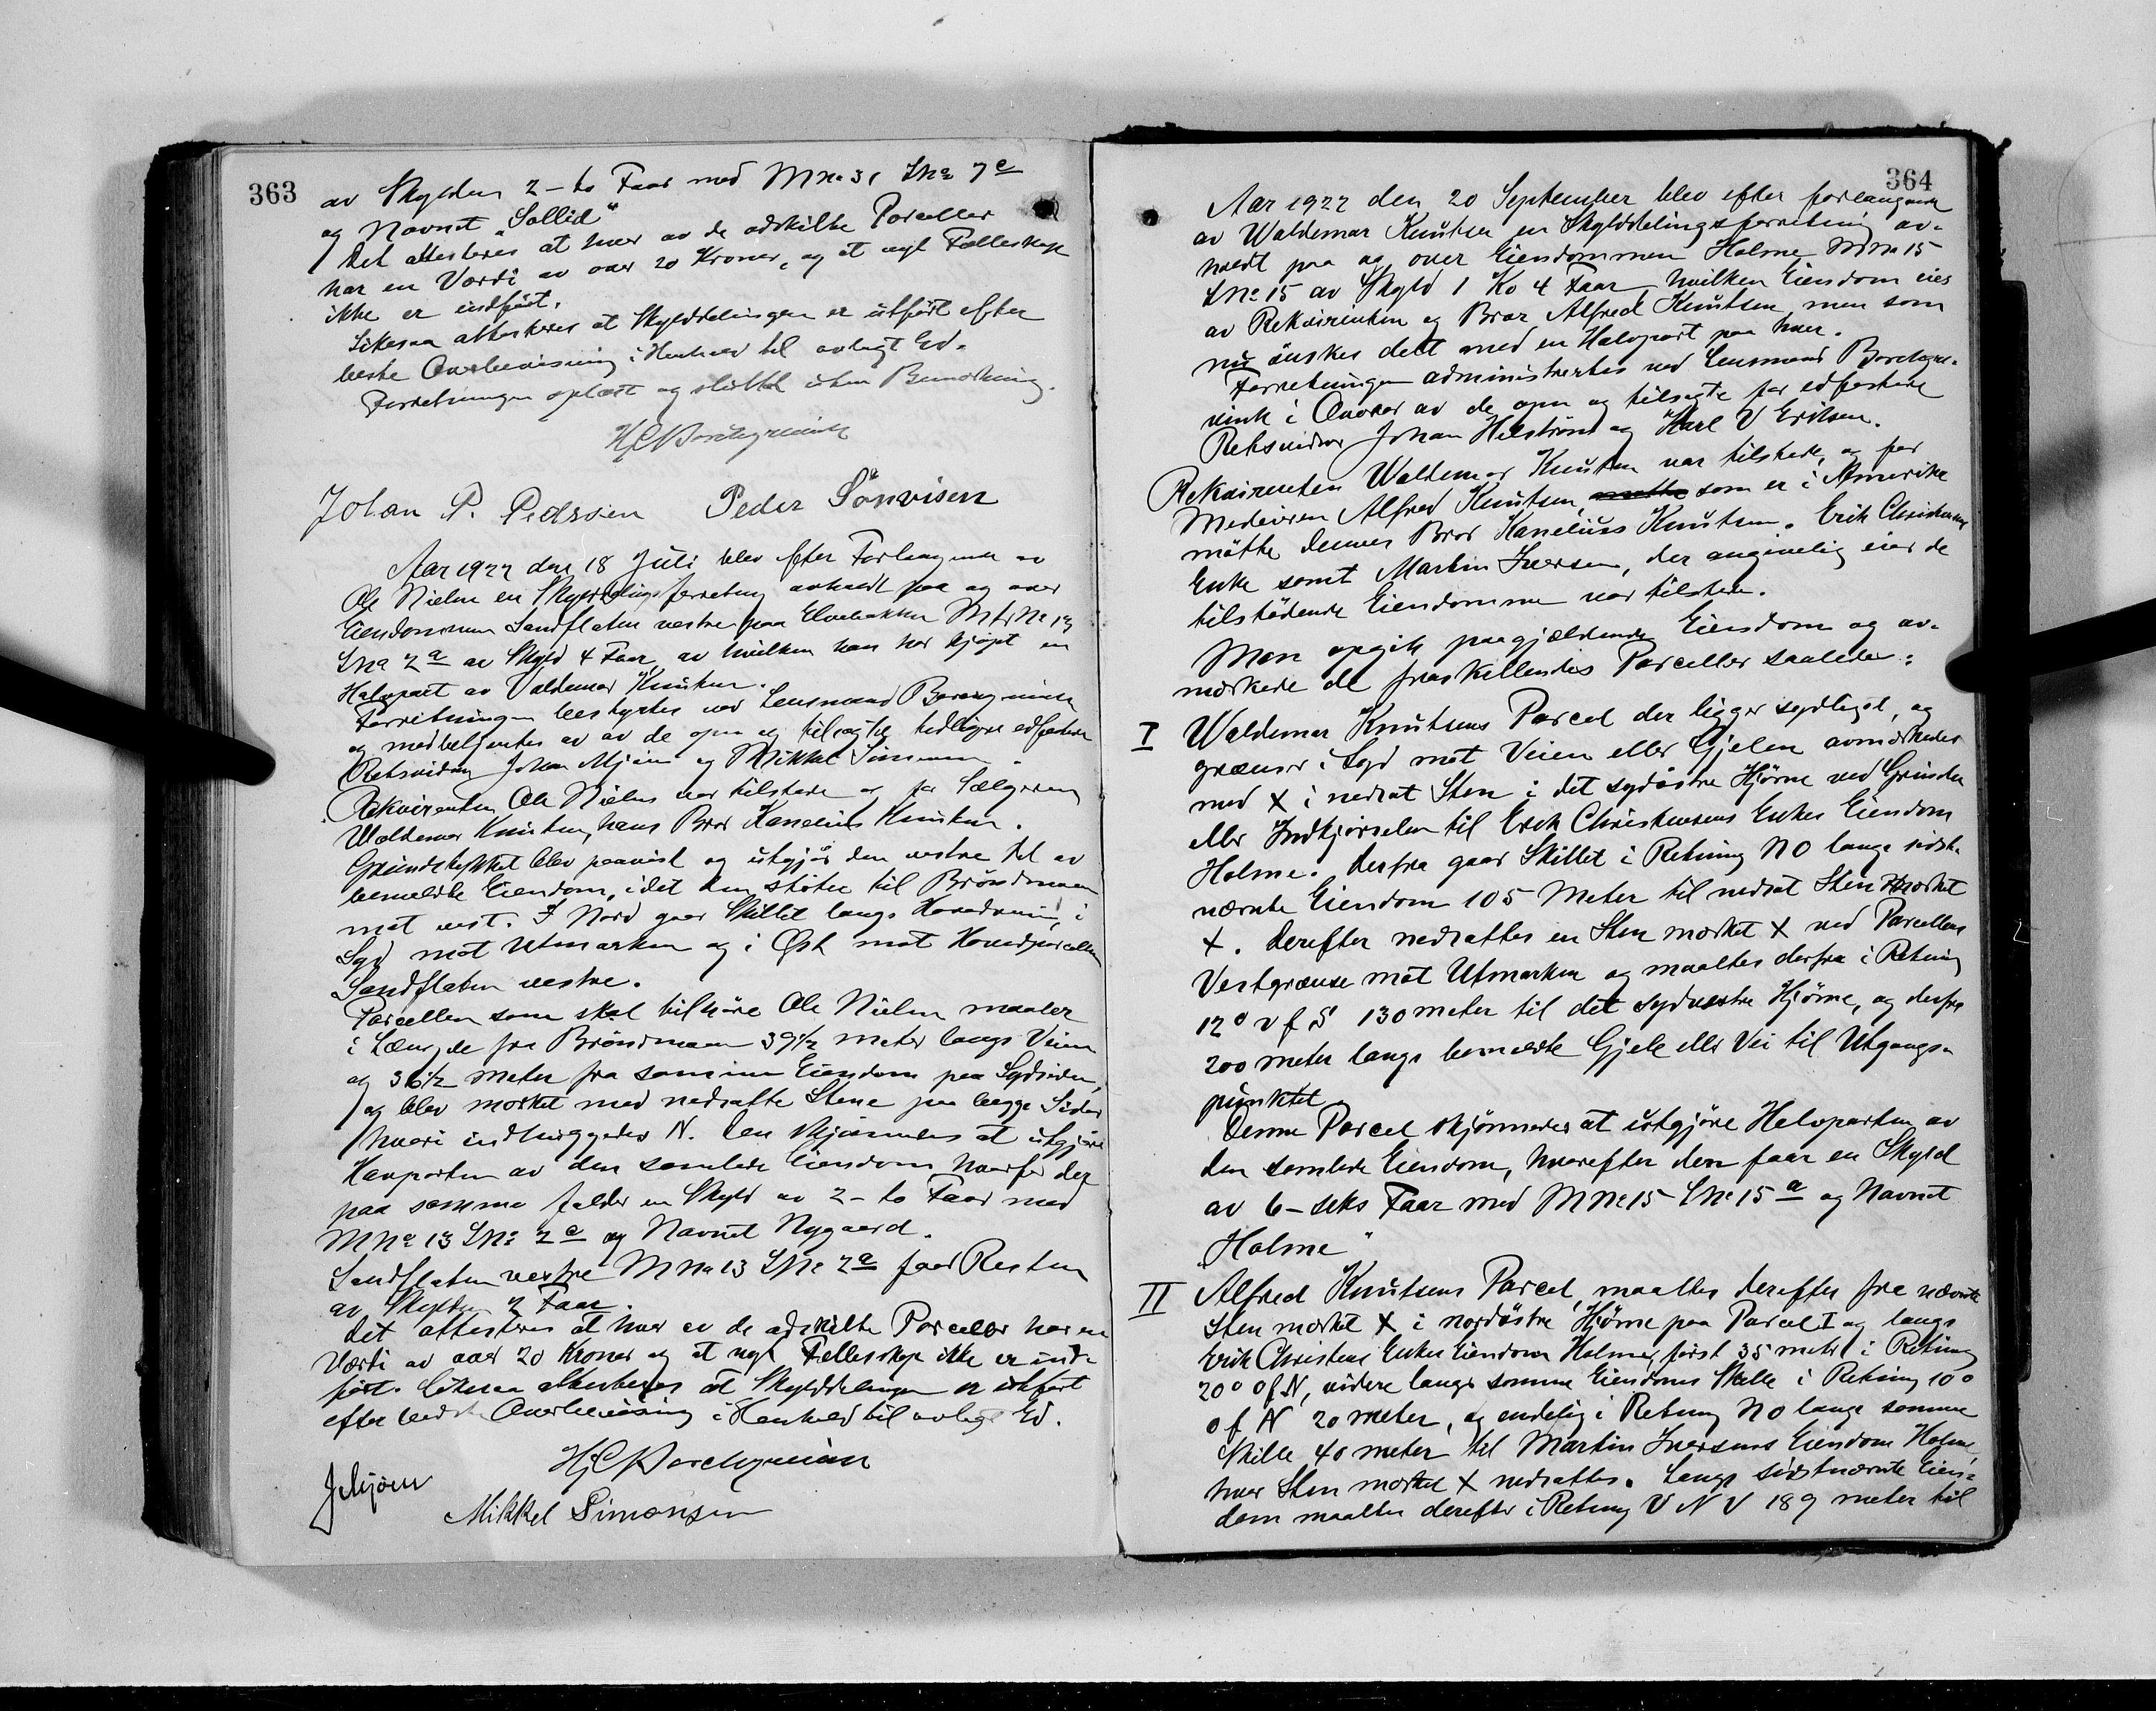 363
av Skylden 2 - to Faar med M no 31 L no 7 c
og Navnet "Sollid"
Det attesteres at hver av de adskilte Parceller
har en Værdi av over 20 Kroner, og at nyt Fælleskap
ikke er indført.
Likesaa attesteres at Skylddelingen er utført efter
beste Overbevisning i Henhold til avlagt Ed.
Forretningen oplæst og sluttet uten Bemerkning.
Johan P. Pedersen Peder Sönvisen
Aar 1922 den 18 Juli blev efter Forlangende av
Ole Nielsen en Skylddelingsforretning avholdt paa og over
Eiendommen Sandflaten vestre paa Elvebakken M No 13
L No 2 a av Skyld 4 Faar, av hvilken han har kjøpt en
Halvpart av Valdemar Knutsen.
Forretningen bestyrtes ved Lensmand
og medbetjentes av de opn. og tilsagte tidligere edfæstede
Retsvidner Johan Mjøen og Mikkel Simonsen
Rekvirenten Ole Nielsen var tilstede og for Sælgeren
Waldemar Knutsen, hans Bror Kanelius Knutsen.
Grundstykket blev paavist og utgjør den vestre Del av
bemeldte Eiendom, idet den støter til Brøndmoen
mot vest. I Nord gaar Skillet langs Hovedveien, i
Syd mot Utmarken og i Øst mot Hovedparcellen
Sandflaten vestre.
Parcellen som skal tilhøre Ole Nielsen maaler
i Længde fra Brøndmoen 39 1/2 meter langs Veien
og 36 1/2 meter fra samme Eiendom paa Sydsiden,
og blev merket med nedsatte Stene paa begge Sider
hvori indhuggedes N. Den skjønnedes at utgjøre
Havparten av den samlede Eiendom hvorfor der
paa samme falder en Skyld av 2 - to Faar med
M No 13 L No 2 c og Navnet Nygaard.
Sandflaten vestre M No 13 L No 2 a faar Resten
av Skylden 2 Faar.
Det attesteres at hver av de adskilte Parceller har en
Værdi av over 20 Kroner og at nyt Fællesskap ikke er ind-
ført. Likesaa attesteres at Skylddelingen er utført
efter bedste Overbevisning i Henhold til avlagt Ed.
J Mjøen
Mikkel Simonsen
364
Aar 1922 den 20 September blev efter forlangende
av Waldemar Knutsen en Skylddelingsforretning av-
holdt paa og over Eiendommen Holme M No 15
L No 15 av Skyld 1 Ko 4 Faar, hvilken Eiendom eies
av Rekvirenten og Bror Alfred Knutsen, men som
nu ønskes delt med en Halvpart paa hver.
Forretningen administrertes ved Lensmand Borchgre-
vink i Overvær av de opn. og tilsagte før edfæstede
Retsvidner Johan Helstrøm og Karl V Eriksen.
Rekvirenten Waldemar Knutsen var tilstede, og for
Medeieren Alfred Knutsen, møtte som er i Amerika
møtte dennes Bror Kanelius Knutsen. Erik Christensens
Enke samt Martin Iversen, der angivelig eier de
tilstødende Eiendomme var tilstede.
Man opgik paagjældende Eiendom og av-
merkede de fraskillendes Parceller saaledes:
I Waldemar Knutsens Parcel der ligger sydligst, og
grænser i Syd mot Veien eller Gjelen avmerkedes
med X i nedsat Sten i det sydøstre Hjørne ved Grinden
eller Indkjørselen til Erik Christensens Enkes Eiendom
Holme. Derfra gaar Skillet i Retning NO langs sidst-
nævnte Eiendom 105 Meter til nedsat Sten merket
X. Derefter nedsattes en Sten merket X ved Parcellens
Vestgrænse mot Utmarken og maaltes derfra i Retning
12° v f S 130 meter til det sydvestre Hjørne, og derfra
200 meter langs bemeldte Gjele eller Vei til Utgangs-
punktet.
Denne Parcel skjønnedes at utgjøre Halvparten av
den samlede Eiendom, hvorefter den faar en Skyld
av 6 - seks Faar med M No 15 L No 15 a og Navnet
"Holme"
II Alfred Knutsens Parcel, maaltes derefter fra nævnte
Sten merket X i nordøstre Hjørne paa Parcel I og langs
Erik Christens Enkes Eiendom Holme, først 35 meter i Retning
20° o f N, videre langs samme Eiendoms Skille i Retning 10°
o f N 20 meter, og endelig i Retning NO langs samme
Skille 40 meter til Martin Iversens Eiendom Holme,
hvor Sten merket X nedsattes. Langs sidstnævnte Eien-
dom maaltes derefter i Retning V N V 189 meter til